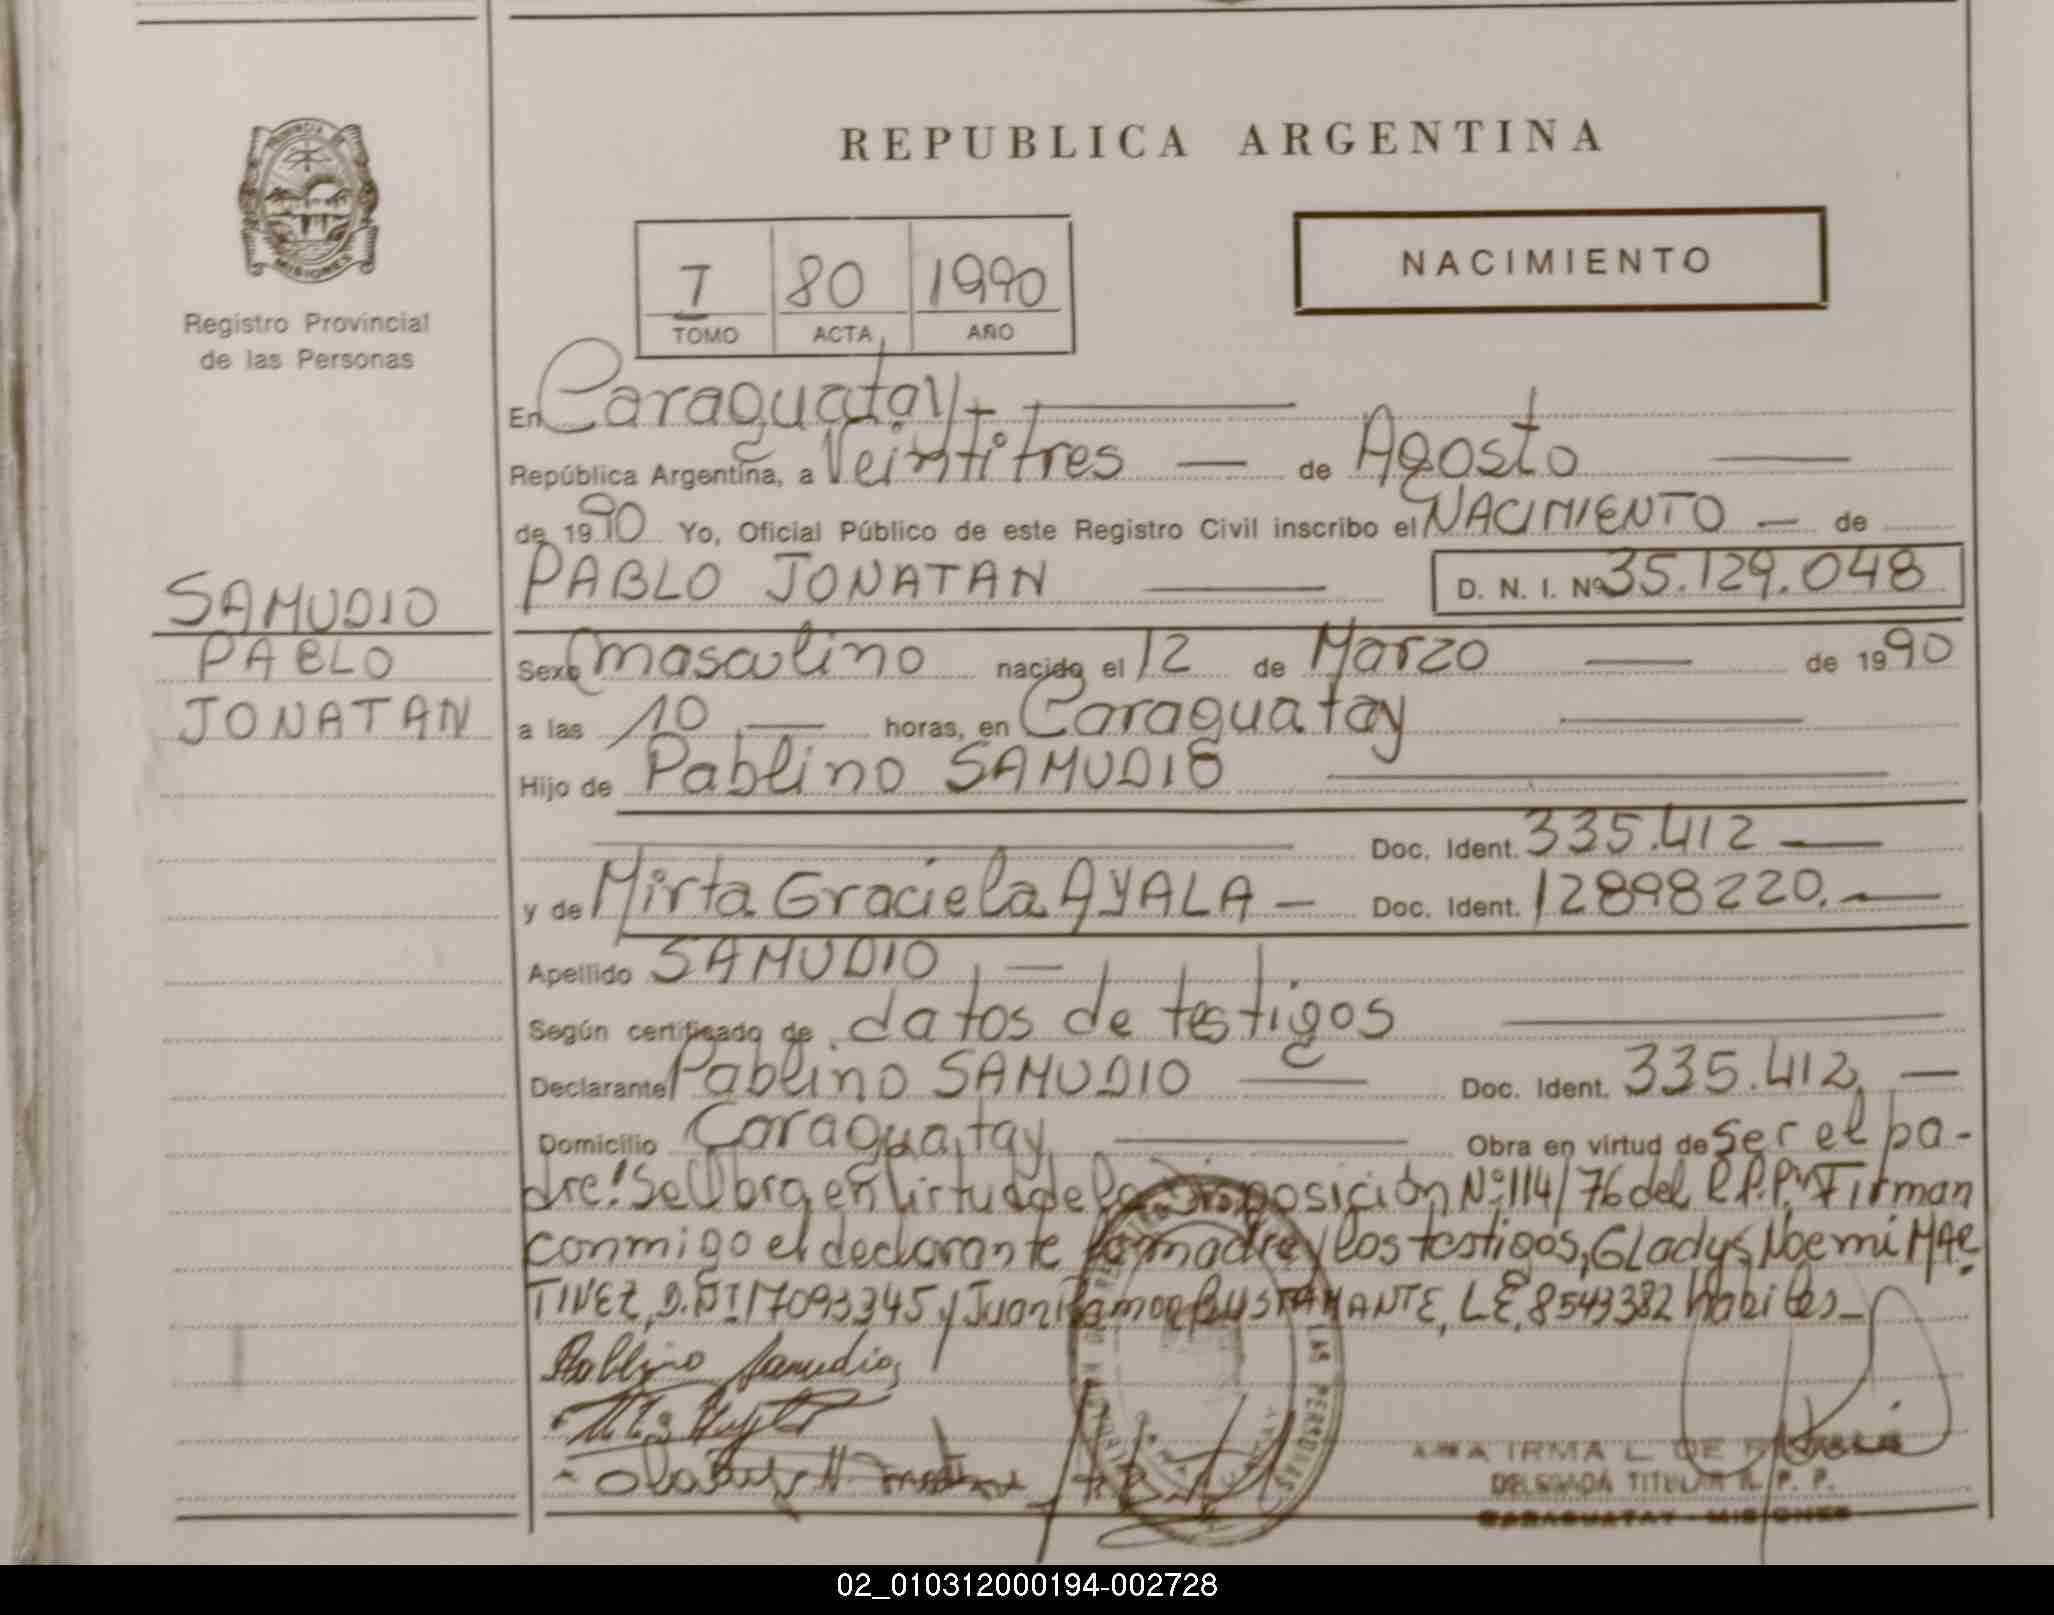 PROVINCIA
MISIONES
Registro Provincial
de las Personas
SAMUDIO
PABLO
JONATAN
REPUBLICA ARGENTINA
I 80 1990
TOMO ACTA AÑO
NACIMIENTO
En Caraguatay
República Argentina, a Veintitres — de Agosto —
de 1990 Yo, Oficial Público de este Registro Civil inscribo el NACIMIENTO — de
PABLO JONATAN — D. N. I. Nº 35.129.048
Sexo masculino nacido el 12 de Marzo — de 1990
a las 10 — horas, en Caraguatay —
Hijo de Pablino SAMUDIO —
Doc. Ident. 335.412 —
y de Mirta Graciela AYALA — Doc. Ident. 12898220. —
Apellido SAMUDIO —
Según certificado de datos de testigos —
Declarante Pablino SAMUDIO — Doc. Ident. 335.412 —
Domicilio Caraguatay — Obra en virtud de ser el pa-
dre! Se Obra en virtud de la Disposición Nº 114/76 del R.P.P. Firman
conmigo el declarante la madre y los testigos, GLadys Noemi MAR
TINEZ, D.NI 17093345 y Juan Ramon BUSTAMANTE, LE, 8543382 habiles_
Pablino Samudio
Gladys N.
IRMA L. DE
DELEGADA TITULAR R. P. P.
CARAGUATAY - MISIONES
LAS PERSONAS
02_010312000194-002728